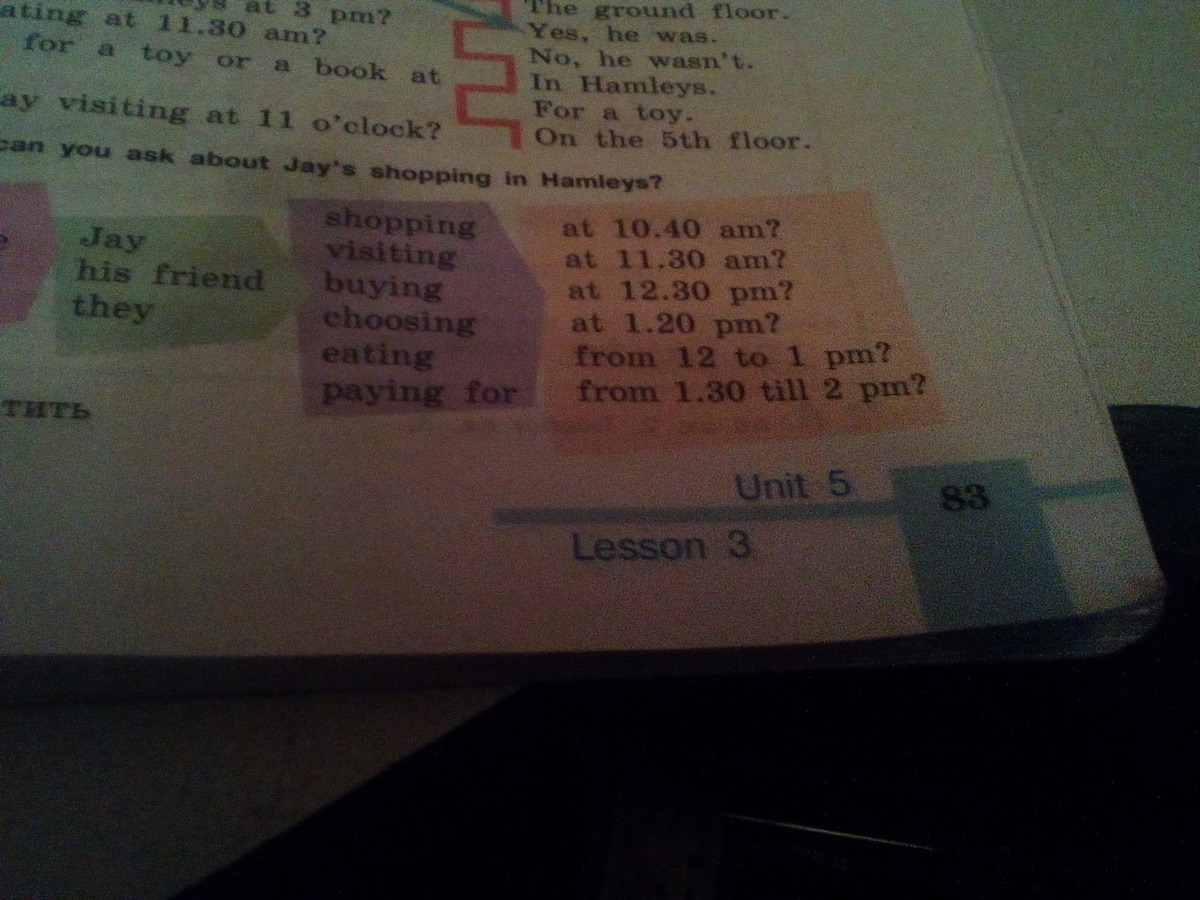 at 3 pm?
at 11.30 am?
for a toy or a book at
visiting at 11 o'clock?
The ground floor.
Yes, he was.
No, he wasn't.
In Hamleys.
For a toy.
On the 5th floor.
can you ask about Jay's shopping in Hamleys?
Jay
his friend
they
shopping
visiting
buying
choosing
eating
paying for
at 10.40 am?
at 11.30 am?
at 12.30 pm?
at 1.20 pm?
from 12 to 1 pm?
from 1.30 till 2 pm?
тить
Unit 5
83
Lesson 3